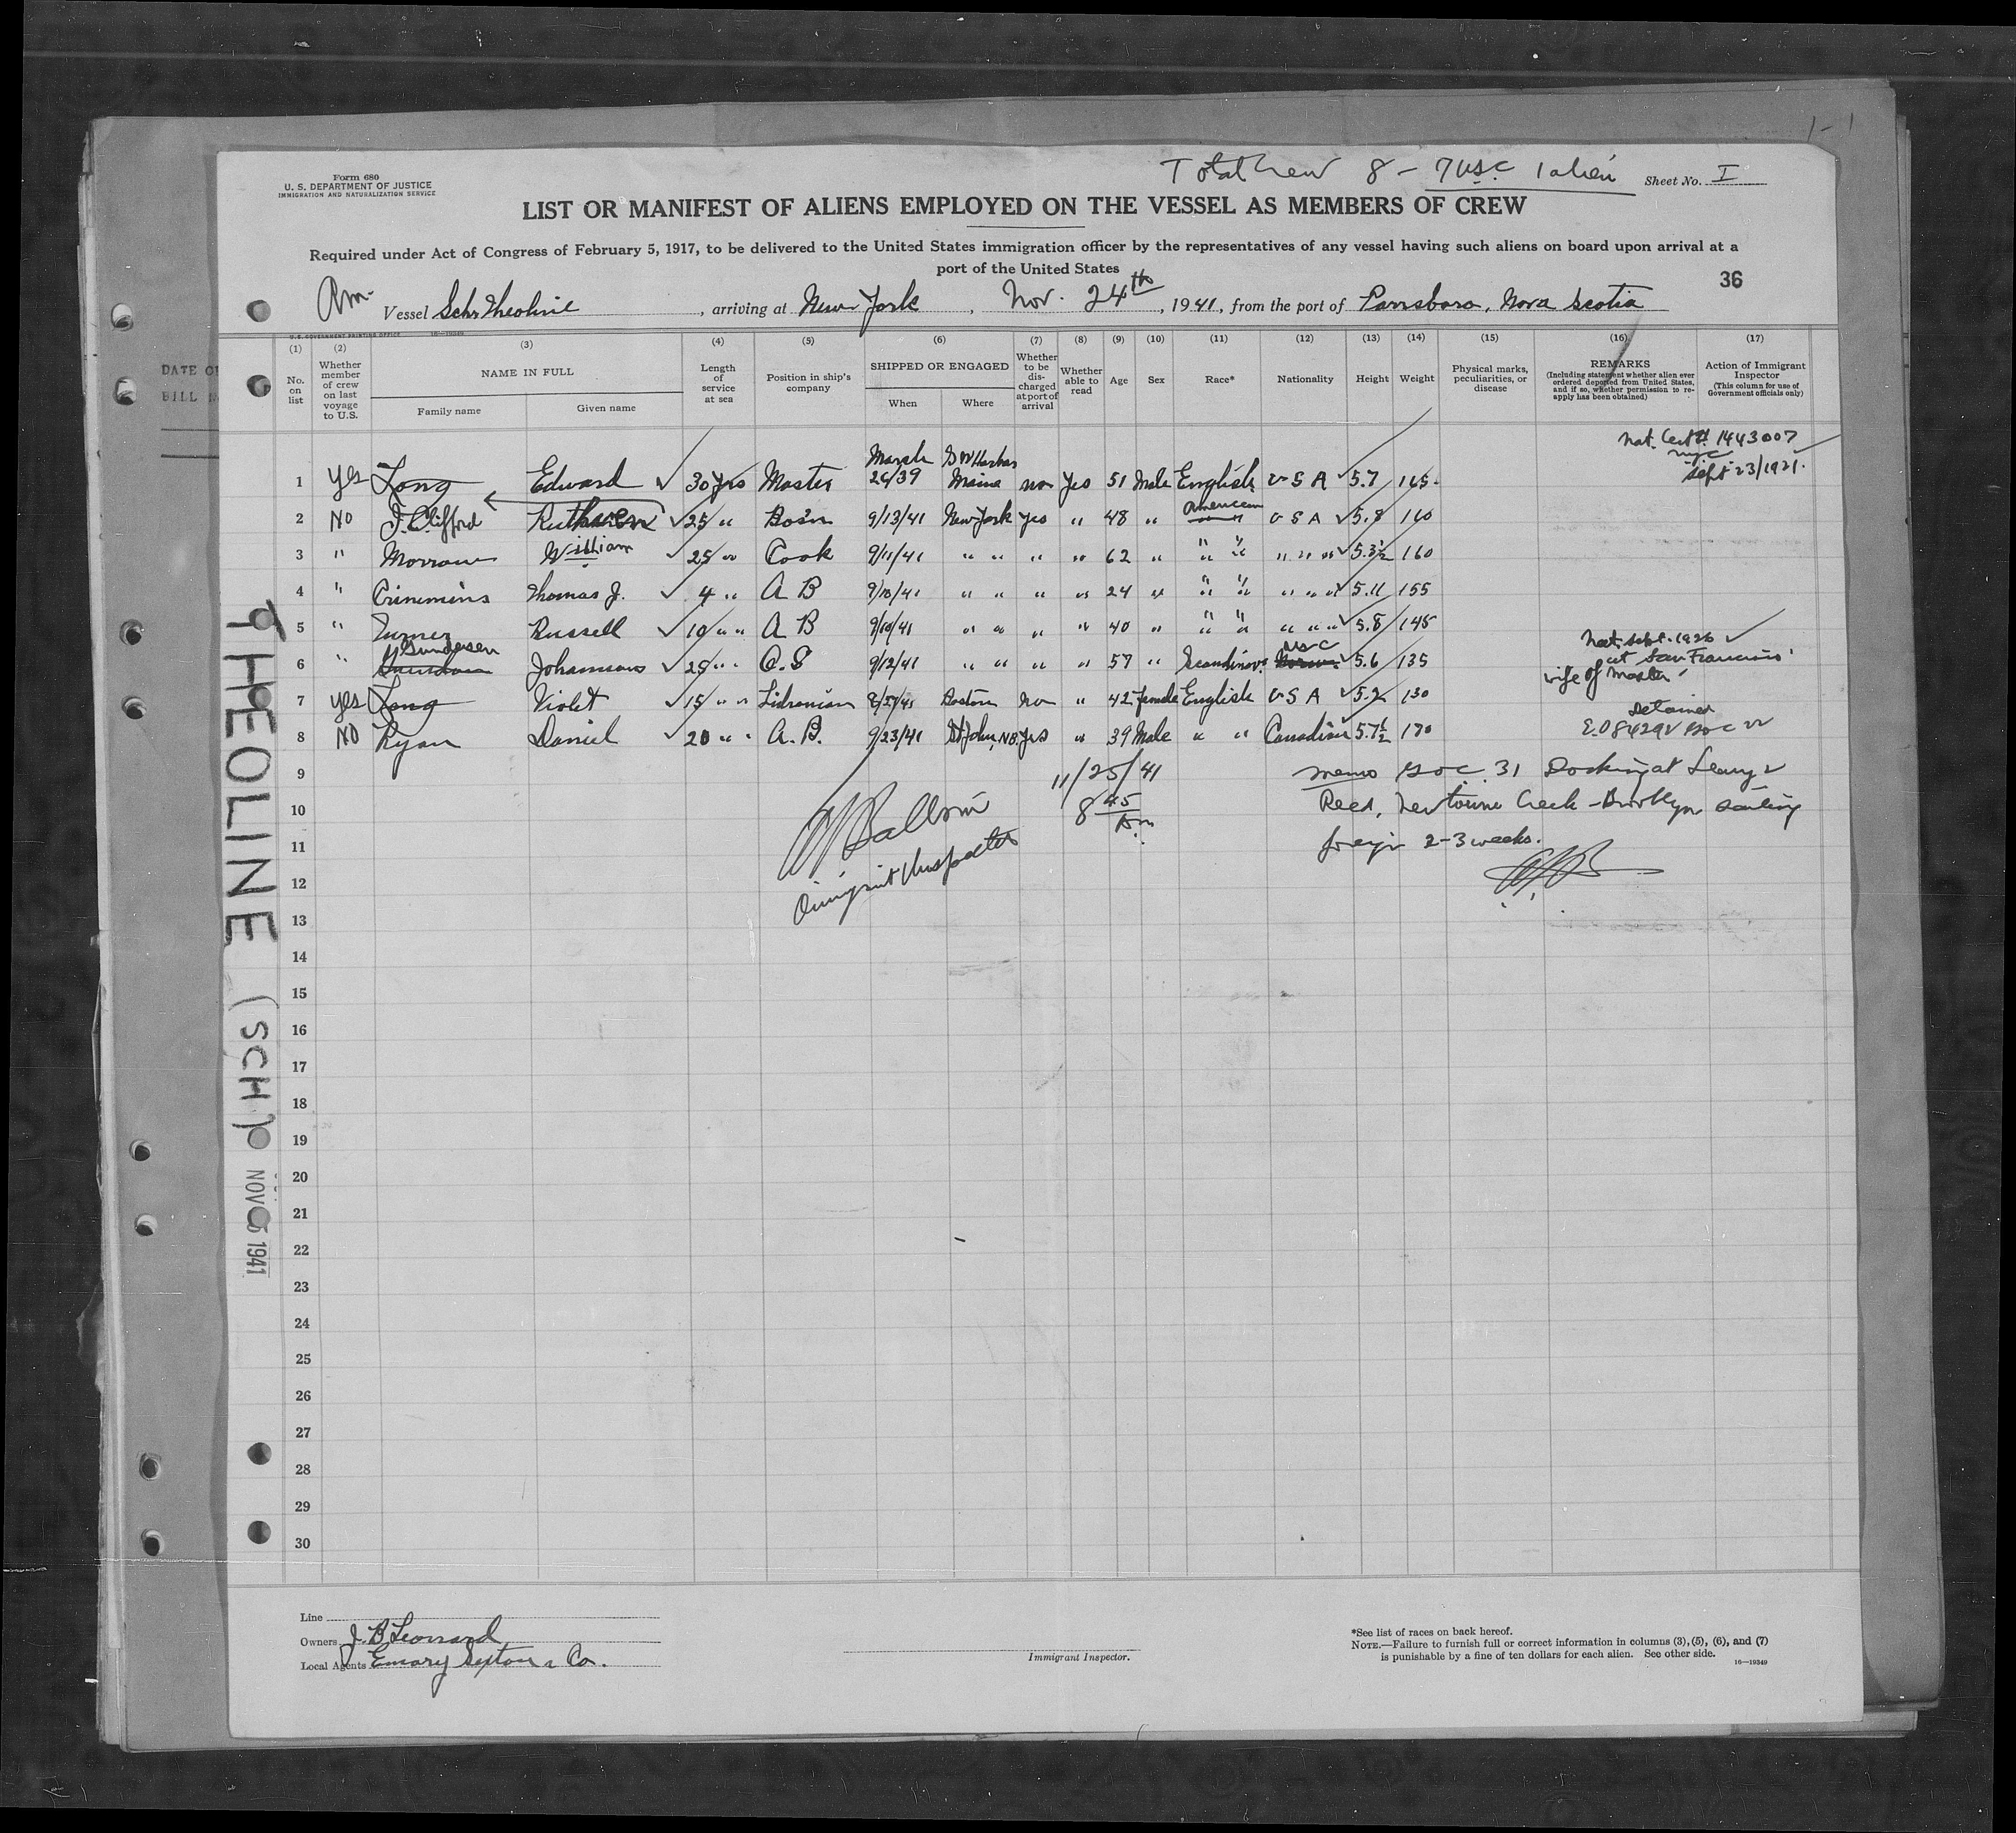 1-1
Form 680
U. S. DEPARTMENT OF JUSTICE
IMMIGRATION AND NATURALIZATION SERVICE
Total Crew 8 - 7 USC 1 alien
Sheet No. I
LIST OR MANIFEST OF ALIENS EMPLOYED ON THE VESSEL AS MEMBERS OF CREW
Required under Act of Congress of February 5, 1917, to be delivered to the United States immigration officer by the representatives of any vessel having such aliens on board upon arrival at a
port of the United States
36
Am. Vessel Schr Theoline, arriving at New York, Nov. 24th, 1941, from the port of Parrsboro, Nova Scotia
U.S. GOVERNMENT PRINTING OFFICE 16—19349
DATE OF
BILL
(1) (2) (3) (4) (5) (6) (7) (8) (9) (10) (11) (12) (13) (14) (15) (16) (17)
No. on list
Whether member of crew on last voyage to U.S.
NAME IN FULL
Family name Given name
Length of service at sea
Position in ship's company
SHIPPED OR ENGAGED
When Where
Whether to be discharged at port of arrival
Whether able to read
Age Sex Race* Nationality Height Weight
Physical marks, peculiarities, or disease
REMARKS
(Including statement whether alien ever ordered deported from United States, and if so, whether permission to reapply has been obtained)
Action of Immigrant Inspector
(This column for use of Government officials only)
Nat. Cert # 1443007
NYC
Sept 23/1921.
1 Yes Long Edward 30 Yrs Master March 26/39 S W Harbor Maine no Yes 51 Male English U S A 5.7 165
2 No J. Clifford Ruthven 25 " Bos'n 9/13/41 New York Yes " 48 " American U S A 5.8 160
3 " Morrow William 25 " Cook 9/11/41 " " " " 62 " " " " " " 5.3½ 160
4 " Crimmins Thomas J. 4 " A B 9/10/41 " " " " 24 " " " " " " 5.11 155
5 " Turner Russell 10 " " A B 9/10/41 " " " " 40 " " " " " " 5.8 145
6 " Gundersen Johannes 25 " " O.S 9/12/41 " " " " 57 " Scandinav. USC 5.6 135 Nat. Sept. 1926 at San Francisco
7 Yes Long Violet 15 " " Librarian Boston no " 42 female English U S A 5.2 130 wife of Master
8 No Ryan Daniel 20 " " A.B. 9/23/41 St John, NB. Yes " 39 Male " " Canadian 5.7½ 170 Detained
9 11/25/41 memo 31 Docking at
10 8 45 Am Newtown Creek - Brooklyn sailing
11 foreign 2-3 weeks.
Immigrant Inspector
12
13
14
15
16
17
18
19
20
21
22
23
24
25
26
27
28
29
30
THEOLINE (SCH)
NOV 1941
Line
Owners J. B Leonard
Local Agents Emory Sexton & Co.
Immigrant Inspector.
*See list of races on back hereof.
NOTE.—Failure to furnish full or correct information in columns (3), (5), (6), and (7)
is punishable by a fine of ten dollars for each alien. See other side.
16—19349